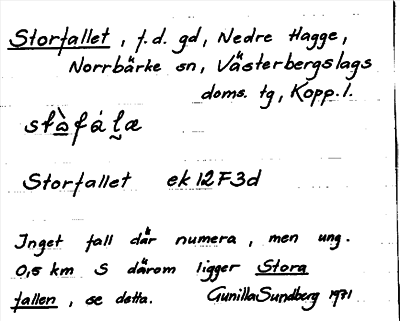 Storfallet, f.d. gd, Nedre Hagge,
Norrbärke sn, Västerbergslags
doms. tg, Kopp. l.
Storfallet ek 12F3d
Inget fall där numera, men ung.
0,5 km S därom ligger Stora
fallen, se detta. Gunilla Sundberg 1971